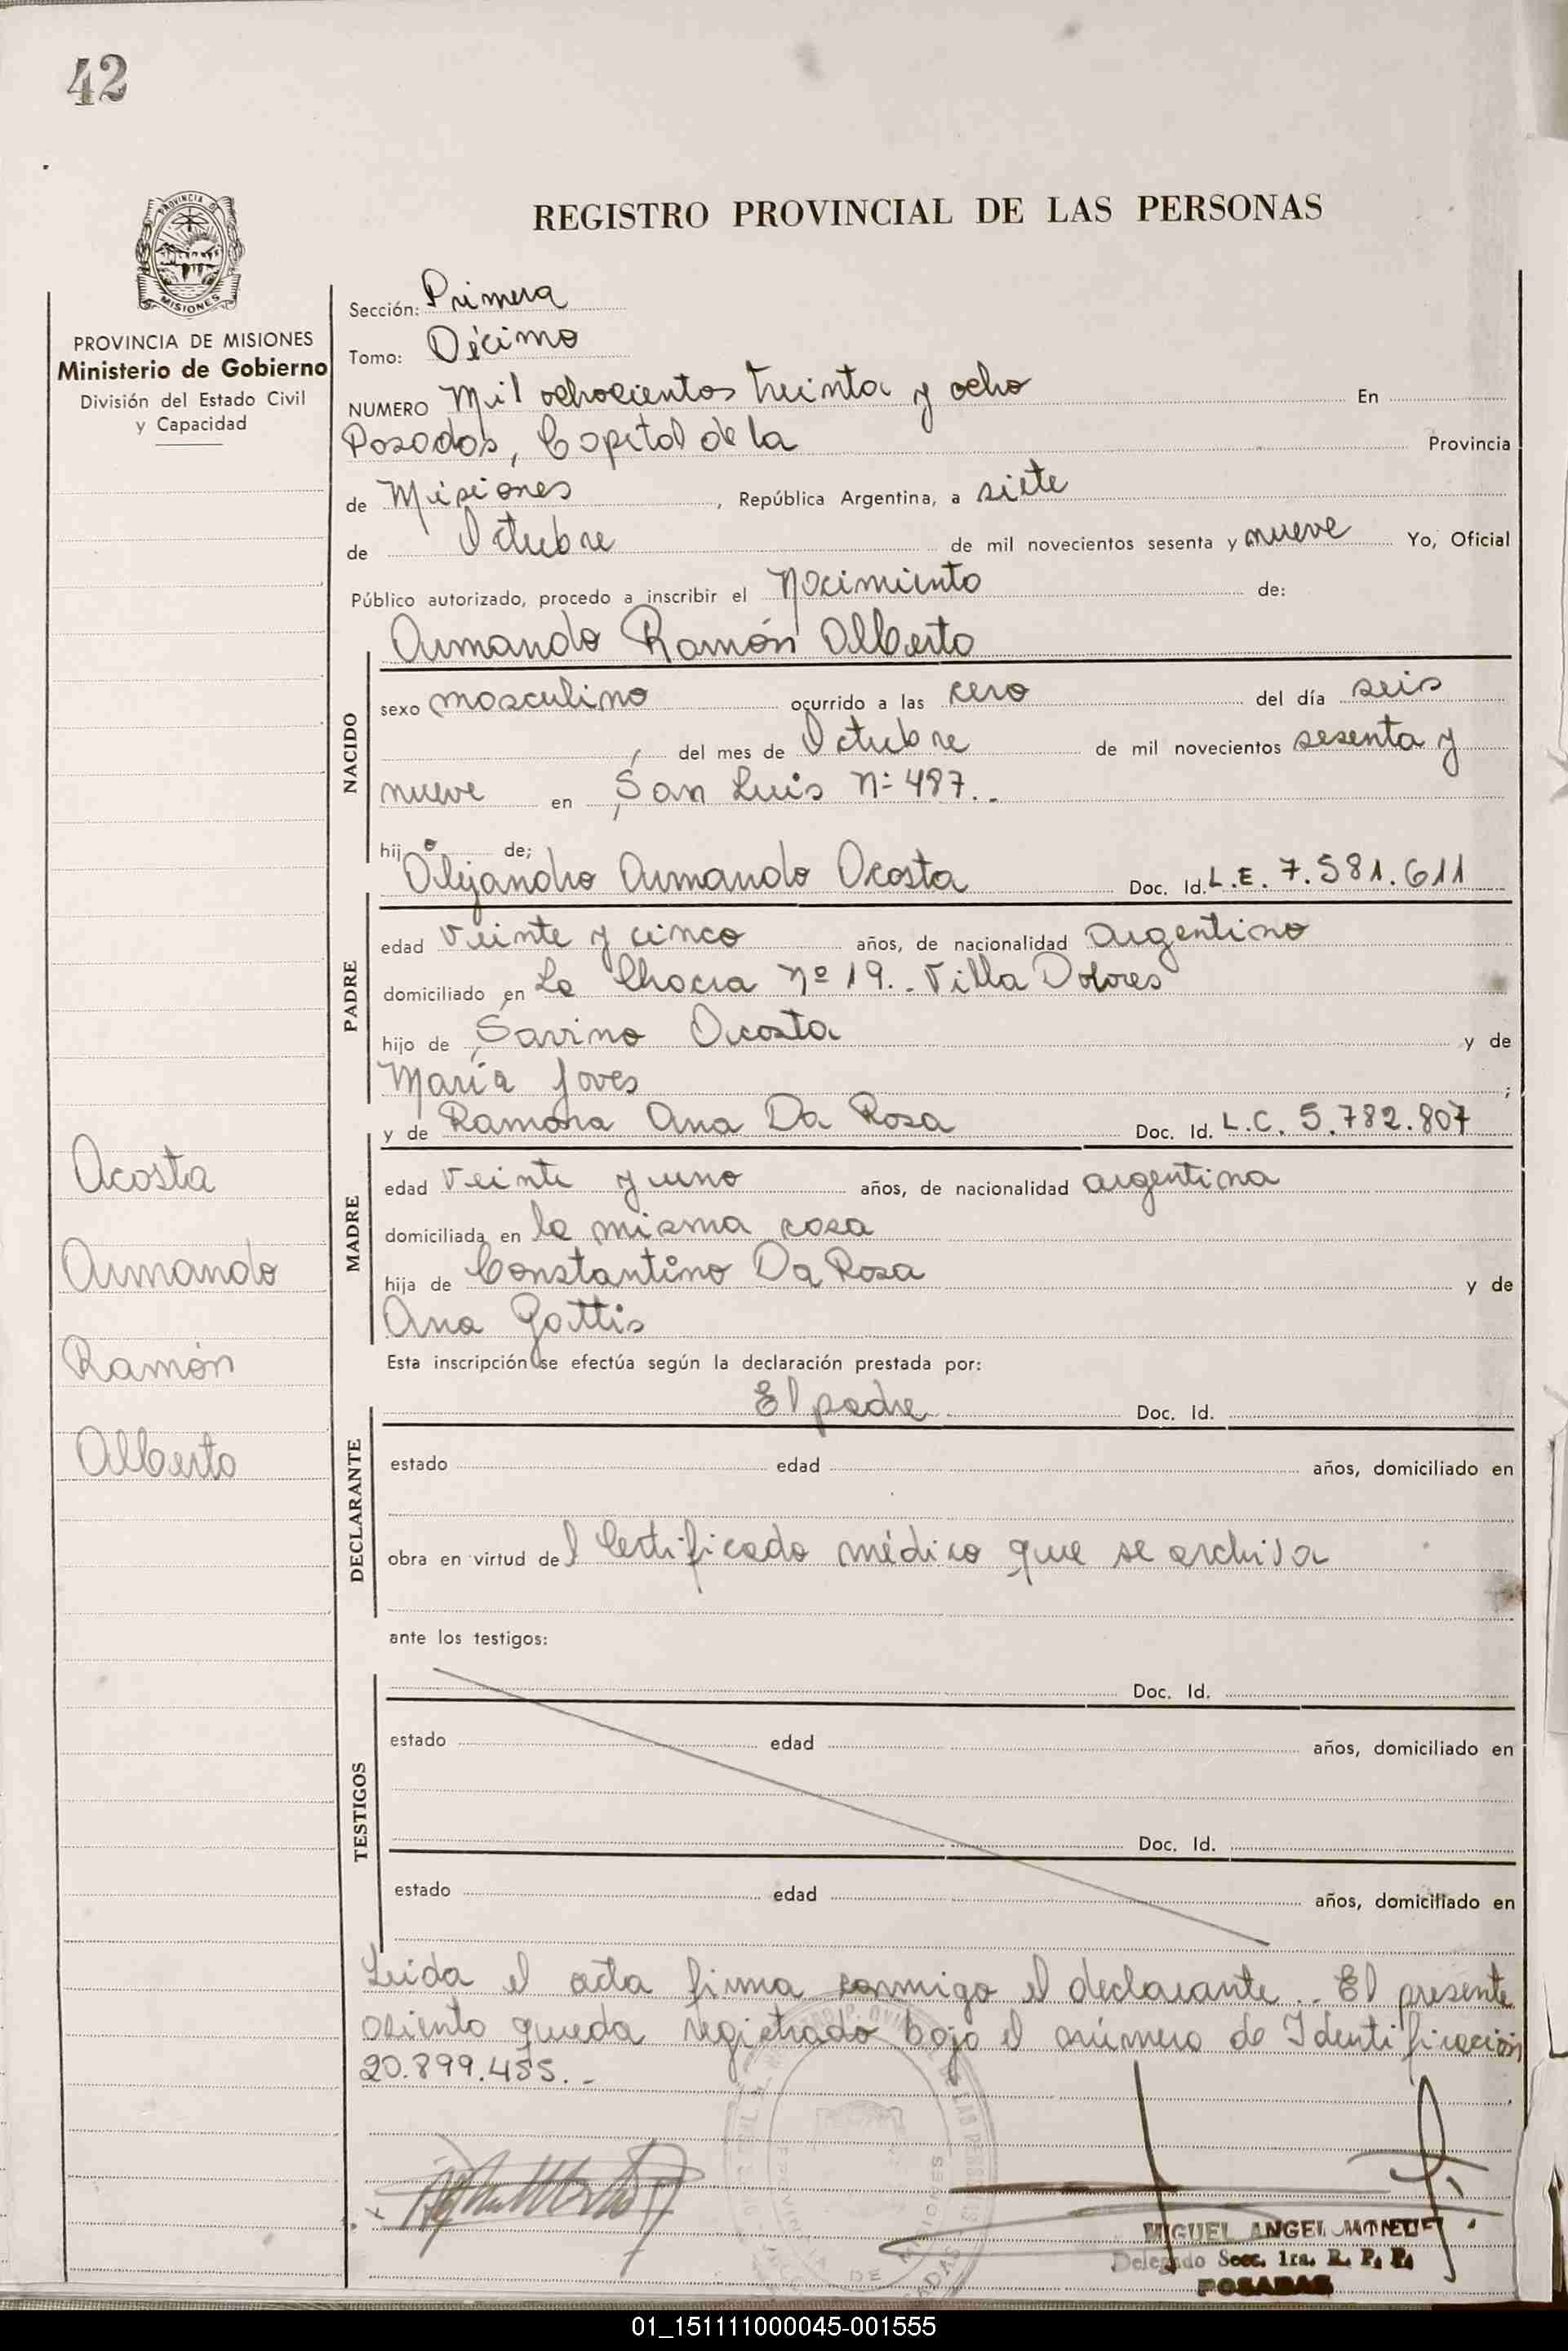 42
REGISTRO PROVINCIAL DE LAS PERSONAS
PROVINCIA DE MISIONES
Ministerio de Gobierno
División del Estado Civil
y Capacidad
Sección: Primera
Tomo: Décimo
NUMERO Mil ochocientos treinta y ocho En
Posadas, Capital de la Provincia
de Misiones, República Argentina, a siete
de Octubre de mil novecientos sesenta y nueve Yo, Oficial
Público autorizado, procedo a inscribir el Nacimiento de:
Armando Ramón Alberto
NACIDO
sexo masculino ocurrido a las cero del día seis
, del mes de Octubre de mil novecientos sesenta y
nueve en San Luis Nº 487..
hijo de;
Alejandro Armando Acosta Doc. Id. L.E. 7.581.611
PADRE
edad veinte y cinco años, de nacionalidad argentino
domiciliado en La Chacra Nº 19.. Villa Dolores
hijo de Savino Acosta y de
María Joves ;
y de Ramona Ana Da Rosa Doc. Id. L.C. 5.782.807
MADRE
edad veinte y uno años, de nacionalidad argentina
domiciliada en la misma casa
hija de Constantino Da Rosa y de
Ana Gattis
Acosta
Armando
Ramón
Alberto
Esta inscripción se efectúa según la declaración prestada por:
El padre Doc. Id.
DECLARANTE
estado edad años, domiciliado en
obra en virtud del Certificado médico que se archiva
ante los testigos:
Doc. Id.
TESTIGOS
estado edad años, domiciliado en
Doc. Id.
estado edad años, domiciliado en
Leida el acta firma conmigo el declarante.. El presente
asiento queda registrado bajo el número de Identificación
20.899.455.-
MIGUEL ANGEL
Delegado Secc. 1ra. R. P. P.
POSADAS
01_151111000045-001555